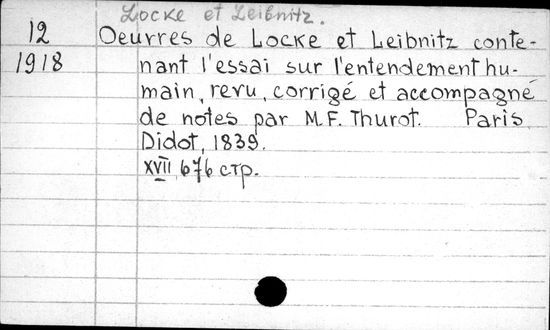 Locke et Leibnitz.
12 Oeuvres de Locke et Leibnitz conte-
1918 nant l'essai sur l'entendement hu-
main, revu, corrigé et accompagné
de notes par M.F. Thurot. Paris
Didot, 1839.
XVII, 676 стр.